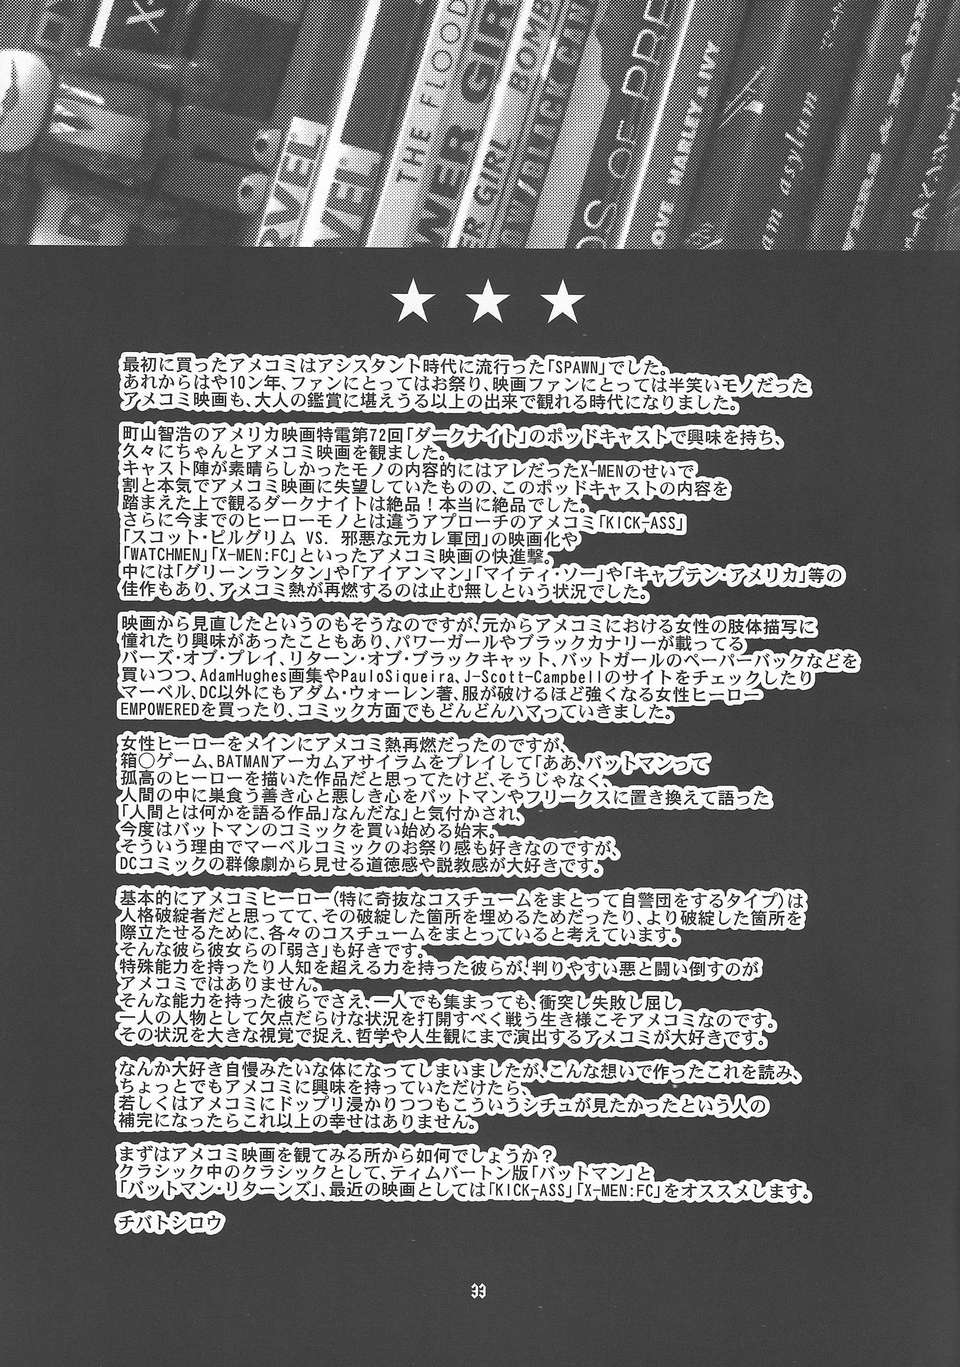 X-
THE FLOOD
WER GIR
ER GIRL BOMB
OW/BLACK CAN
DS OF PRE
LOVE HARLEY & IVY
m asylum
RVEL
VEL
★ ★ ★
最初に買ったアメコミはアシスタント時代に流行った「SPAWN」でした。
あれからはや10ン年、ファンにとってはお祭り、映画ファンにとっては半笑いモノだった
アメコミ映画も、大人の鑑賞に堪えうる以上の出来で観れる時代になりました。
町山智浩のアメリカ映画特電第72回「ダークナイト」のポッドキャストで興味を持ち、
久々にちゃんとアメコミ映画を観ました。
キャスト陣が素晴らしかったモノの内容的にはアレだったX-MENのせいで
割と本気でアメコミ映画に失望していたものの、このポッドキャストの内容を
踏まえた上で観るダークナイトは絶品！本当に絶品でした。
さらに今までのヒーローモノとは違うアプローチのアメコミ「KICK-ASS」
「スコット・ピルグリム VS. 邪悪な元カレ軍団」の映画化や
「WATCHMEN」「X-MEN:FC」といったアメコミ映画の快進撃。
中には「グリーンランタン」や「アイアンマン」「マイティ・ソー」や「キャプテン・アメリカ」等の
佳作もあり、アメコミ熱が再燃するのは止む無しという状況でした。
映画から見直したというのもそうなのですが、元からアメコミにおける女性の肢体描写に
憧れたり興味があったこともあり、パワーガールやブラックカナリーが載ってる
バーズ・オブ・プレイ、リターン・オブ・ブラックキャット、バットガールのペーパーバックなどを
買いつつ、AdamHughes画集やPauloSiqueira、J-Scott-Campbellのサイトをチェックしたり
マーベル、DC以外にもアダム・ウォーレン著、服が破けるほど強くなる女性ヒーロー
EMPOWEREDを買ったり、コミック方面でもどんどんハマっていきました。
女性ヒーローをメインにアメコミ熱再燃だったのですが、
箱○ゲーム、BATMANアーカムアサイラムをプレイして「ああ、バットマンって
孤高のヒーローを描いた作品だと思ってたけど、そうじゃなく、
人間の中に巣食う善き心と悪しき心をバットマンやフリークスに置き換えて語った
「人間とは何かを語る作品」なんだな」と気付かされ、
今度はバットマンのコミックを買い始める始末。
そういう理由でマーベルコミックのお祭り感も好きなのですが、
DCコミックの群像劇から見せる道徳感や説教感が大好きです。
基本的にアメコミヒーロー(特に奇抜なコスチュームをまとって自警団をするタイプ)は
人格破綻者だと思ってて、その破綻した箇所を埋めるためだったり、より破綻した箇所を
際立たせるために、各々のコスチュームをまとっていると考えています。
そんな彼ら彼女らの「弱さ」も好きです。
特殊能力を持ったり人知を超える力を持った彼らが、判りやすい悪と闘い倒すのが
アメコミではありません。
そんな能力を持った彼らでさえ、一人でも集まっても、衝突し失敗し屈し
一人の人物として欠点だらけな状況を打開すべく戦う生き様こそアメコミなのです。
その状況を大きな視覚で捉え、哲学や人生観にまで演出するアメコミが大好きです。
なんか大好き自慢みたいな体になってしまいましたが、こんな想いで作ったこれを読み、
ちょっとでもアメコミに興味を持っていただけたら、
若しくはアメコミにドップリ浸かりつつもこういうシチュが見たかったという人の
補完になったらこれ以上の幸せはありません。
まずはアメコミ映画を観てみる所から如何でしょうか？
クラシック中のクラシックとして、ティムバートン版「バットマン」と
「バットマン・リターンズ」、最近の映画としては「KICK-ASS」「X-MEN:FC」をオススメします。
チバトシロウ
33